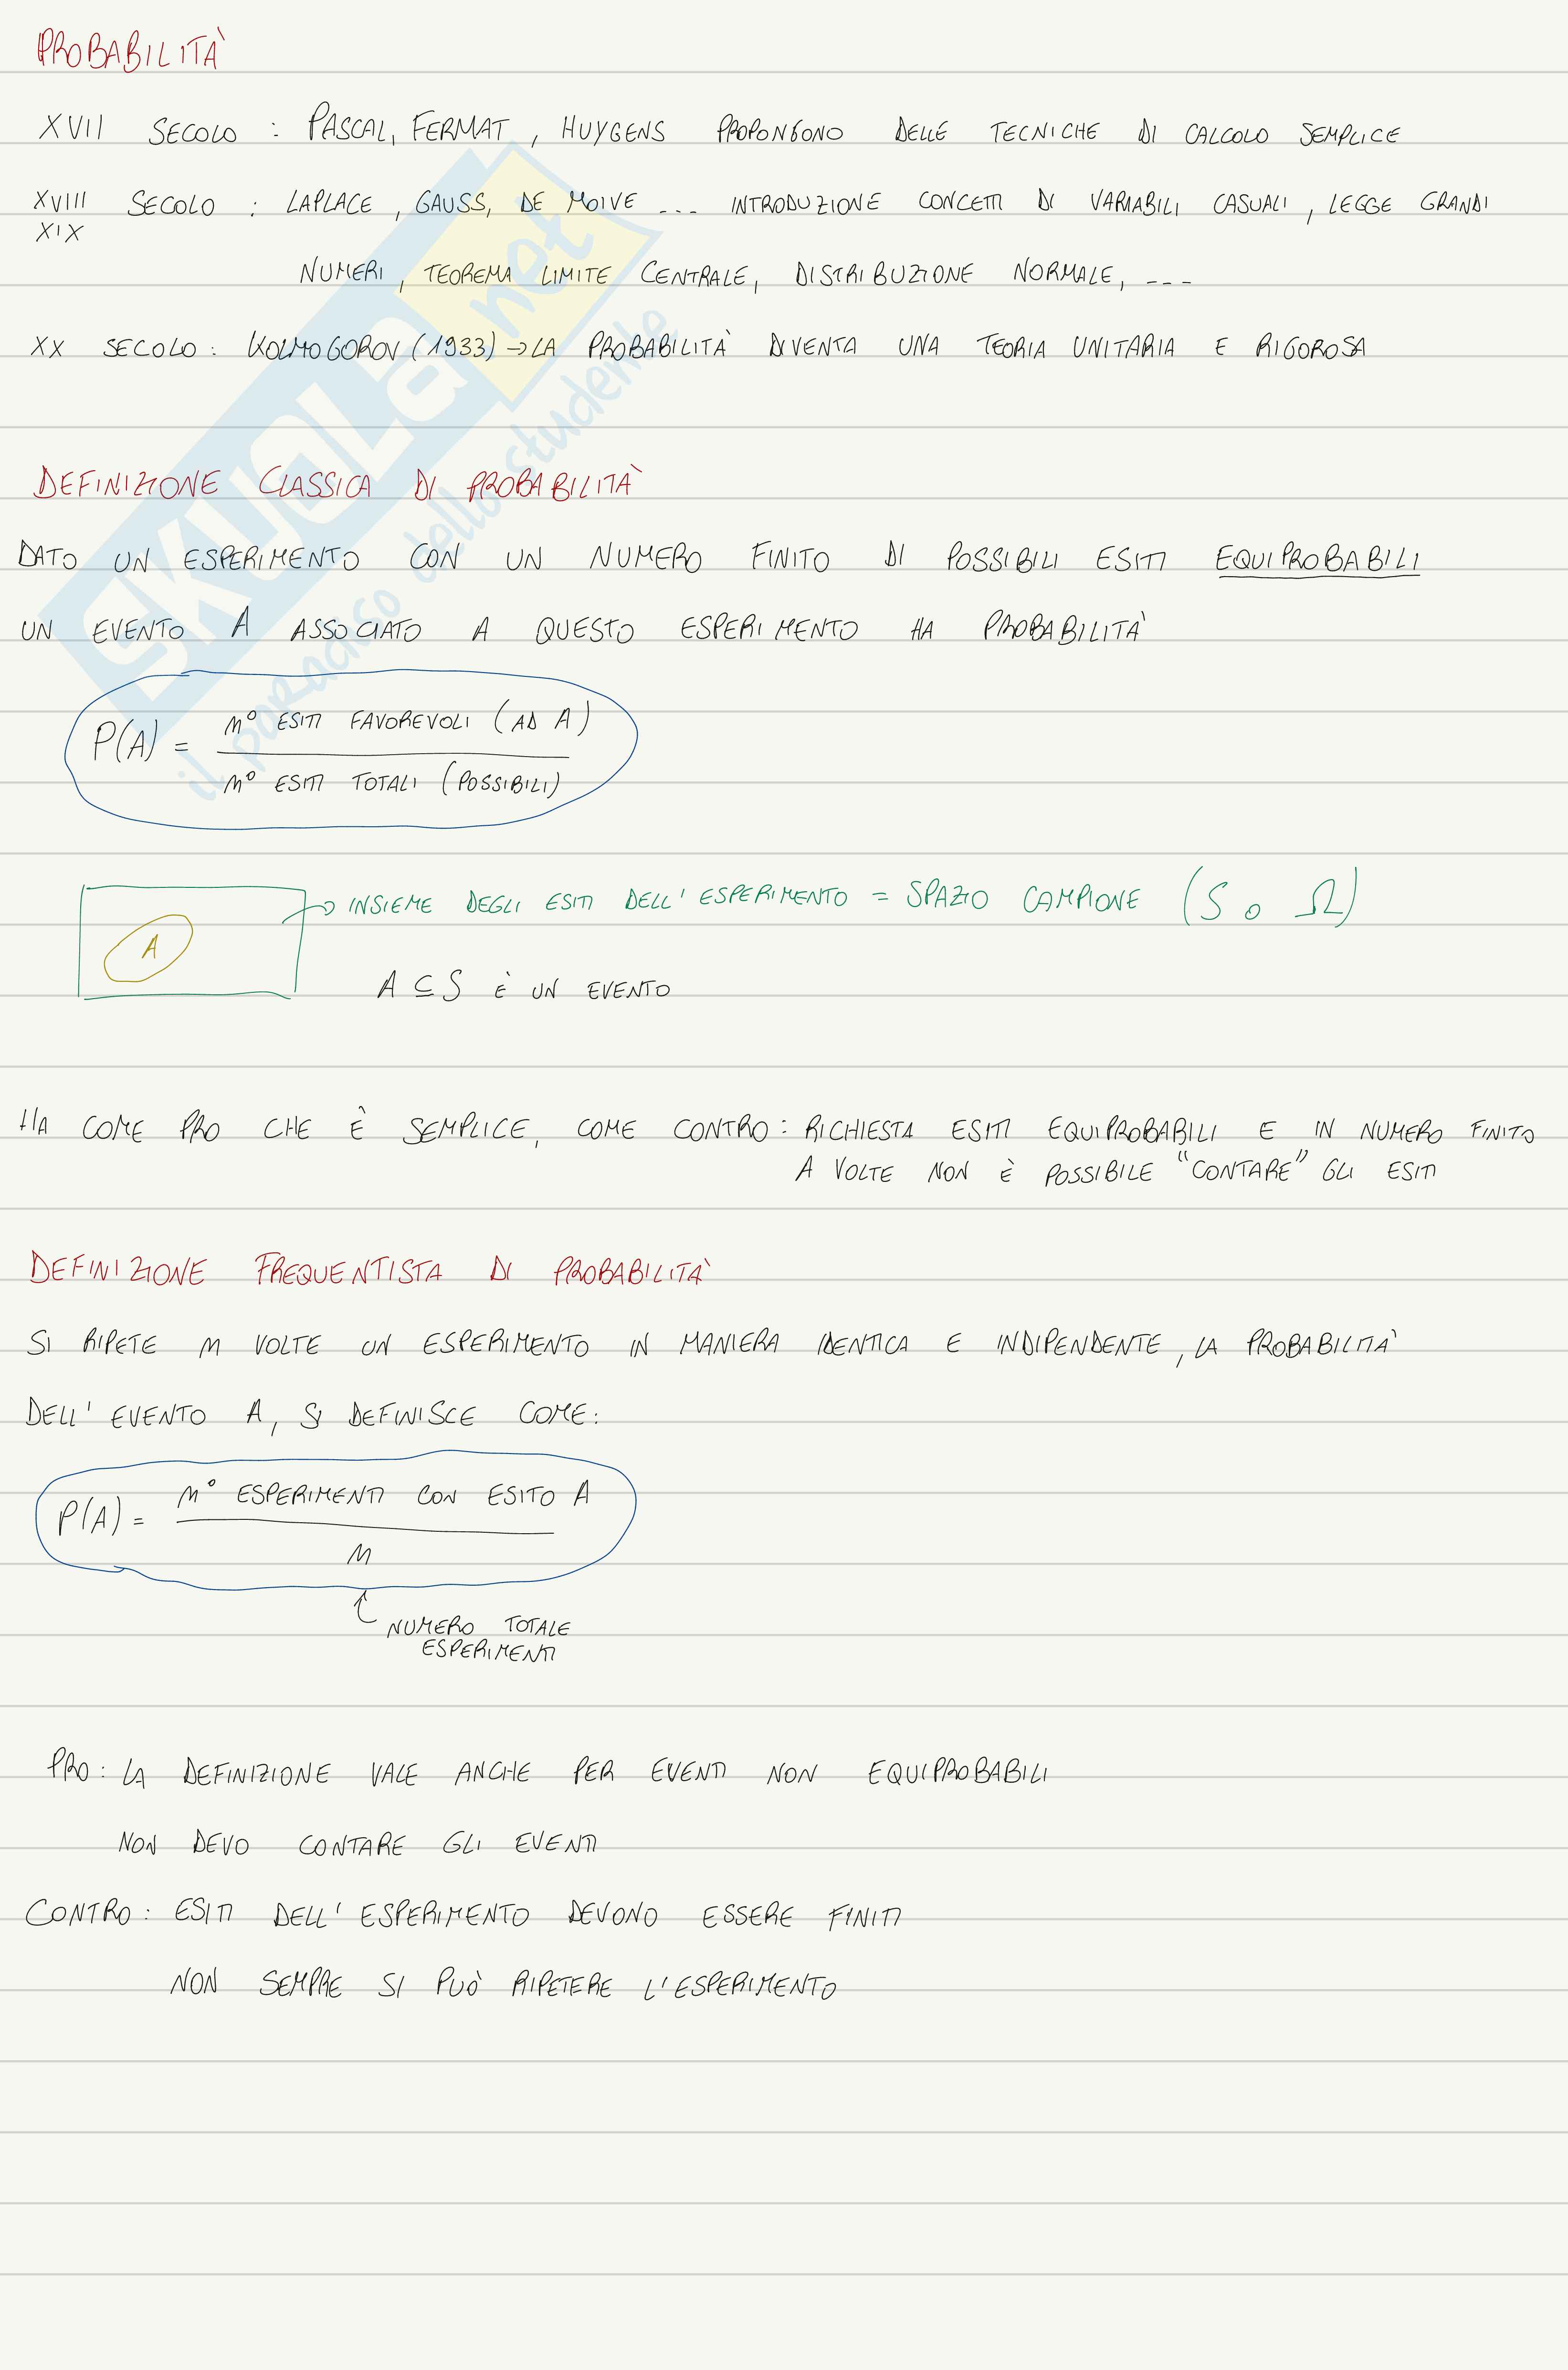 PROBABILITÀ
XVII SECOLO : PASCAL, FERMAT, HUYGENS PROPONGONO DELLE TECNICHE DI CALCOLO SEMPLICE
XVIII SECOLO : LAPLACE, GAUSS, DE MOIVE ... INTRODUZIONE CONCETTI DI VARIABILI CASUALI, LEGGE GRANDI
XIX
NUMERI, TEOREMA LIMITE CENTRALE, DISTRIBUZIONE NORMALE, ---
XX SECOLO: KOLMOGOROV (1933) → LA PROBABILITÀ DIVENTA UNA TEORIA UNITARIA E RIGOROSA
DEFINIZIONE CLASSICA DI PROBABILITÀ
DATO UN ESPERIMENTO CON UN NUMERO FINITO DI POSSIBILI ESITI EQUIPROBABILI
UN EVENTO A ASSOCIATO A QUESTO ESPERIMENTO HA PROBABILITÀ
P(A) = n° ESITI FAVOREVOLI (AD A)
n° ESITI TOTALI (POSSIBILI)
→ INSIEME DEGLI ESITI DELL'ESPERIMENTO = SPAZIO CAMPIONE (S o Ω)
A
A ⊆ S È UN EVENTO
HA COME PRO CHE È SEMPLICE, COME CONTRO: RICHIESTA ESITI EQUIPROBABILI E IN NUMERO FINITO
A VOLTE NON È POSSIBILE "CONTARE" GLI ESITI
DEFINIZIONE FREQUENTISTA DI PROBABILITÀ
SI RIPETE n VOLTE UN ESPERIMENTO IN MANIERA IDENTICA E INDIPENDENTE, LA PROBABILITÀ
DELL'EVENTO A, SI DEFINISCE COME:
P(A) = n° ESPERIMENTI CON ESITO A
n
NUMERO TOTALE
ESPERIMENTI
PRO: LA DEFINIZIONE VALE ANCHE PER EVENTI NON EQUIPROBABILI
NON DEVO CONTARE GLI EVENTI
CONTRO: ESITI DELL'ESPERIMENTO DEVONO ESSERE FINITI
NON SEMPRE SI PUÒ RIPETERE L'ESPERIMENTO
SKUOLa.net
il paradiso dello studente